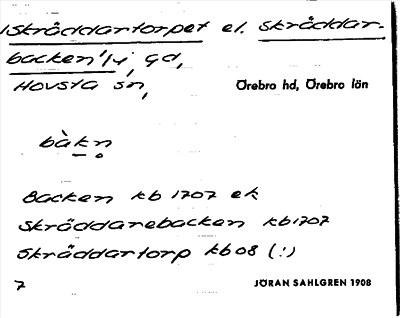 Skräddartorpet el. Skräddar-
backen, gd,
Hovsta sn, Örebro hd, Örebro län
bàkn
Backen kb 1707 ek
Skräddarebacken kb 1707
Skräddartorp kb 08 (!)
7 JÖRAN SAHLGREN 1908